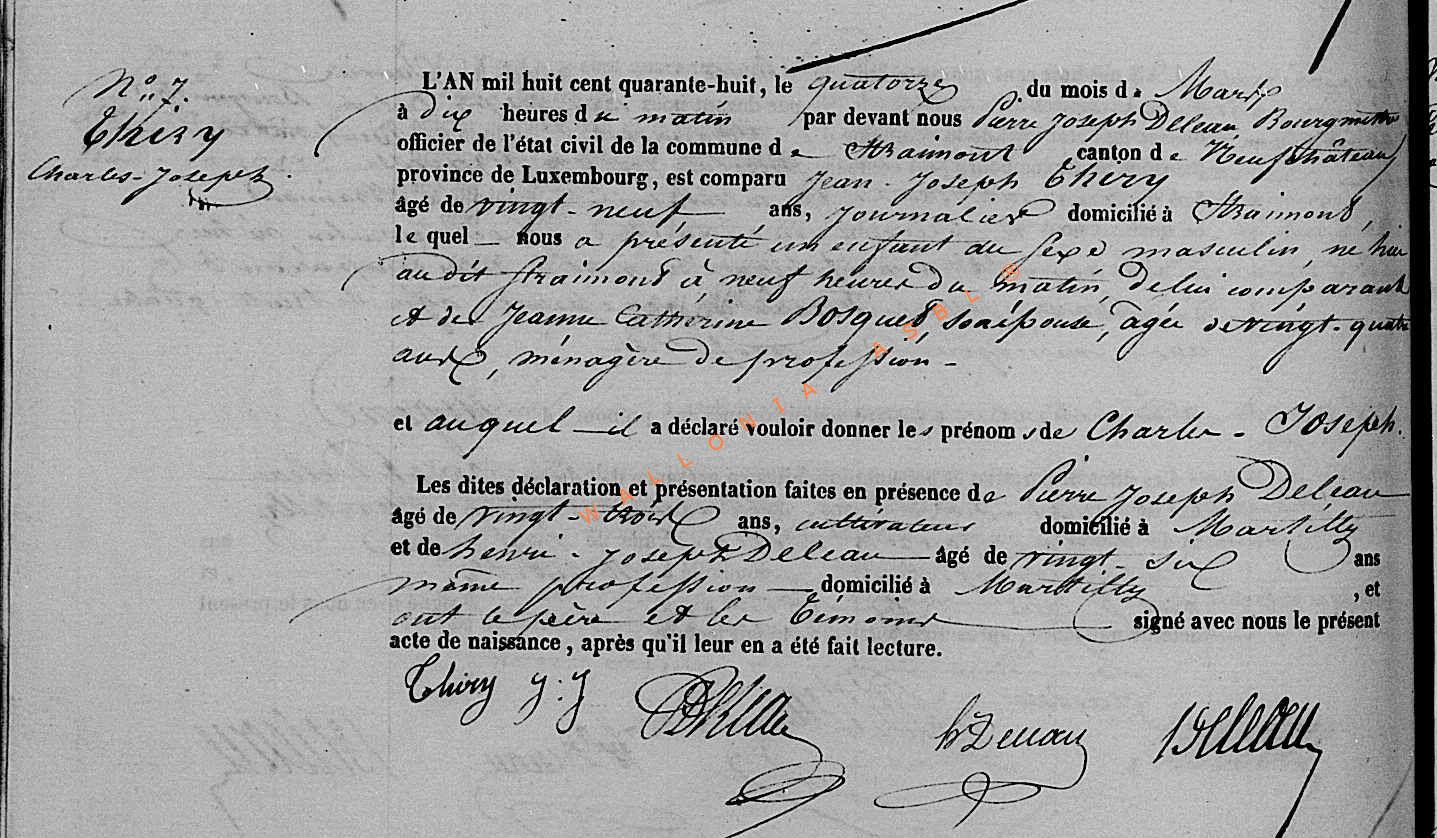 N° 7.
Thiry
Charles-Joseph.
L'AN mil huit cent quarante-huit, le quatorze du mois de Mars
à dix heures du matin par devant nous Pierre Joseph Deleau, Bourgmestre
officier de l'état civil de la commune de Straimont canton de Neufchâteau
province de Luxembourg, est comparu Jean-Joseph Thiry
âgé de vingt-neuf ans, journalier domicilié à Straimont,
lequel nous a présenté un enfant du sexe masculin, né hier
au dit Straimont à neuf heures du matin, de lui comparant
et de Jeanne Catherine Bosquet, son épouse, âgée de vingt-quatre
ans, ménagère de profession -
et auquel il a déclaré vouloir donner les prénoms de Charles-Joseph.
Les dites déclaration et présentation faites en présence de Pierre Joseph Deleau
âgé de vingt-trois ans, cultivateur domicilié à Martilly
et de henri-Joseph Deleau âgé de vingt-six ans
même profession domicilié à Martilly, et
ont le père et les témoins signé avec nous le présent
acte de naissance, après qu'il leur en a été fait lecture.
Thiry J:J Deleau h Deleau Deleau
WALLONIA ASBL ©